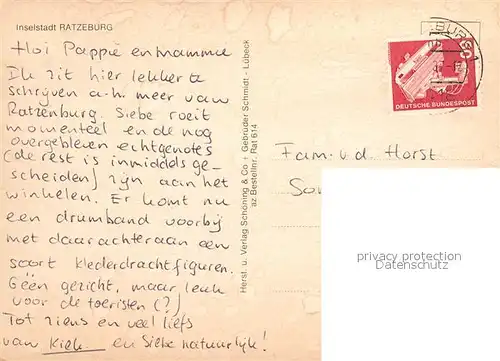 Inselstadt RATZEBURG
Hoi Pappie en mamma
Ik zit hier lekker te
schrijven a.h. meer van
Ratzenburg. Siebe roeit
momenteel en de nog
overgebleven echtgenotes
(de rest is inmiddels ge-
scheiden) zijn aan het
winkelen. Er komt nu
een drumband voorbij
met daarachteraan een
soort klederdrachtfiguren.
Géén gezicht, maar leuk
voor de toeristen (?)
Tot ziens en veel liefs
van Kiek en Siebe natuurlijk!
Herst. u. Verlag Schöning & Co + Gebrüder Schmidt - Lübeck
az Bestellnr. Rat 614
DEUTSCHE BUNDESPOST
Fam. v.d. Horst
privacy protection
Datenschutz